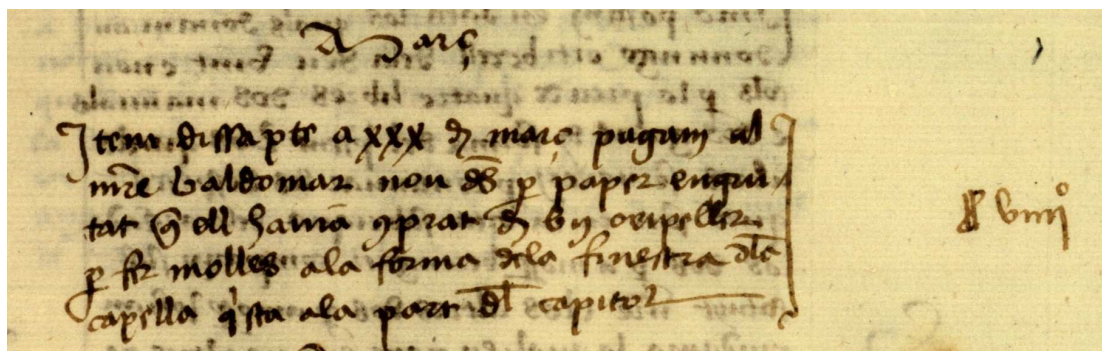 Març
Item dissapte a xxx de març pagam al
mestre Valdomar nou diners per paper engru
tat que ell havia comprat de un oripeller
per fer molles a la forma de la finestra de la
capella que sta a la part del capitol
viiii